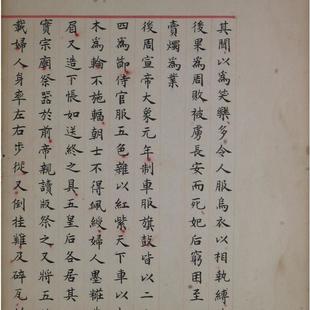 其間以為笑樂多令人服烏衣以相執縛
後果為周敗被虜長安而死妃后窮困至
賣燭為業
後周宣帝大象元年制車服旗鼓皆以二
四為節侍官服五色雜以紅紫天下車以
木為輪不施輻朝士不得佩綬婦人墨粧
眉又造下帳如送終之具五皇后各居其
實宗廟祭器於前帝親讀版祭之又將五
載婦人身率左右步從又倒挂雞及碎瓦